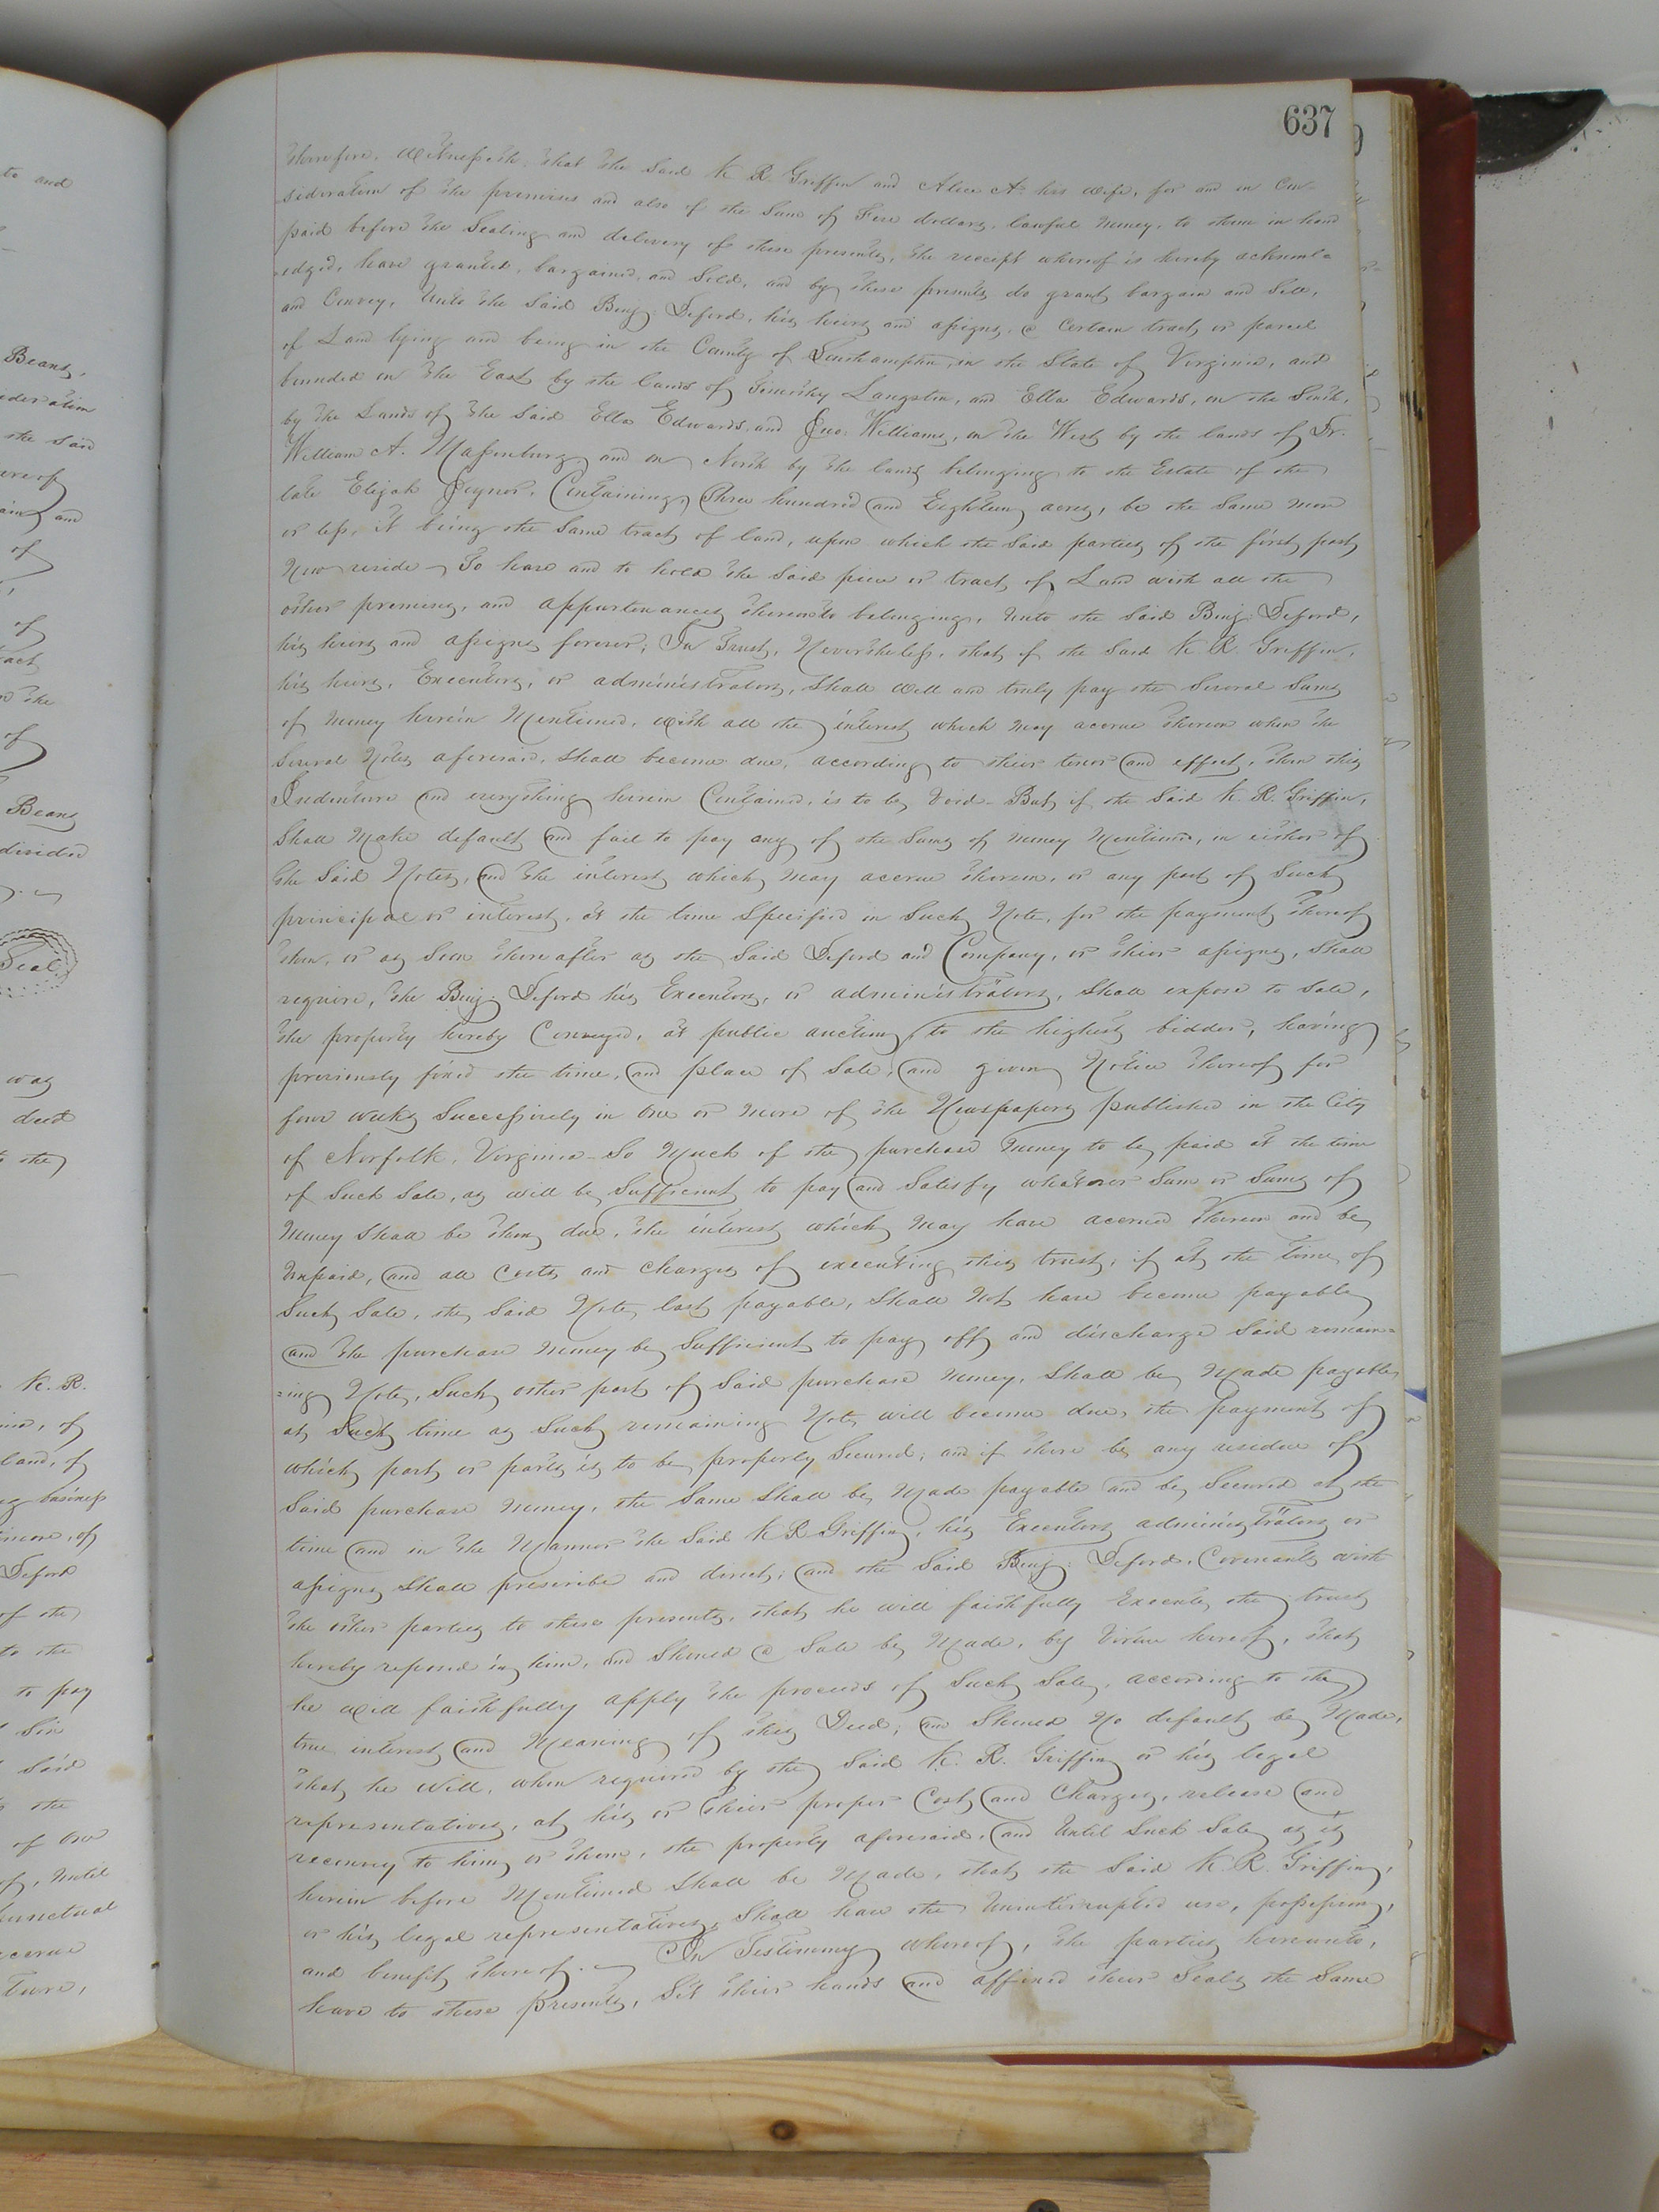 637
therefore, Witnesseth, that the said K. R. Griffin and Alice A. his wife, for and in Con-
sideration of the premises and also of the Sum of Five dollars, lawful money, to them in hand
paid before the Sealing and delivery of these presents, the receipt whereof is hereby acknowl-
edged, have granted, bargained, and Sold, and by these presents do grant bargain and Sell,
and Convey, Unto the Said Benj. Deford, his heirs and assigns, a Certain tract, or parcel
of Land lying and being in the County of Southampton, in the State of Virginia, and
bounded on the East by the lands of Timothy Langston, and Ella Edwards, on the South,
by the Lands of the Said Ella Edwards, and Jno. Williams, on the West by the lands of Dr.
William A. Massenburg, and on North by the lands belonging to the Estate of the
late Elijah Joyner, Containing, Three hundred and Eighteen acres, be the Same more
or less, it being the Same tract of land, upon which the Said parties of the first part
Now reside, To have and to hold the Said piece or tract of Land with all the
other premises, and appurtenances thereunto belonging, Unto the Said Benj. Deford,
his heirs and assigns forever; In Trust, Nevertheless, that if the Said K. R. Griffin,
his heirs, Executors, or administrators, Shall Well and truly pay the Several Sums
of Money herein Mentioned, with all the interest which may accrue thereon when the
Several Notes aforesaid, Shall become due, according to their tenor and effect, then this
Indenture and everything herein Contained, is to be Void. But if the Said K. R. Griffin,
Shall Make default and fail to pay any of the Sums of money Mentioned, in either of
the Said Notes, and the interest which may accrue thereon, or any part of Such
principal or interest, at the time Specified in Such Note, for the payment thereof
then, or as Soon thereafter as the Said Deford and Company, or their assigns, Shall
require, the Benj. Deford his Executors, or administrators, Shall expose to Sale,
the property hereby Conveyed, at public auction, to the highest bidder, having
previously fixed the time, and place of Sale, and given Notice thereof for
four weeks Successively in One or More of the Newspapers published in the City
of Norfolk, Virginia. So Much of the purchase Money to be paid at the time
of Such Sale, as will be Sufficient to pay and Satisfy whatever Sum or Sums of
Money Shall be then due, the interest which May have accrued thereon and be
Unpaid, and all Costs and Charges of executing this trust; if at the time of
Such Sale, the Said Note, last payable, Shall Not have become payable
and the purchase Money be Sufficient to pay off and discharge Said remain-
ing Note, Such other part of Said purchase Money, Shall be Made payable
at Such time as Such remaining Note, will become due, the payment of
which part or parts is to be properly Secured; and if there be any residue of
Said purchase Money, the Same Shall be Made payable and be Secured at the
time and in the Manner the Said K. R. Griffin, his Executors administrators or
assigns Shall prescribe and direct; and the Said Benj. Deford, Covenants with
the other parties to these presents, that he will faithfully Execute the trust
hereby reposed in him, and Should a Sale be Made, by Virtue hereof, that
he will faithfully apply the proceeds of Such Sale, according to the
true interest and Meaning of this Deed; and Should No default be Made,
that he Will, when required by the Said K. R. Griffin or his legal
representatives, at his or their proper Cost and Charges, release and
reconvey to him or them, the property aforesaid, and Until Such Sale as is
herein before Mentioned Shall be Made, that the Said K. R. Griffin,
or his legal representatives, Shall have the Uninterrupted use, possession,
and benefit thereof. In Testimony whereof, the parties hereunto,
have to these presents, Set their hands and affixed their Seals the Same